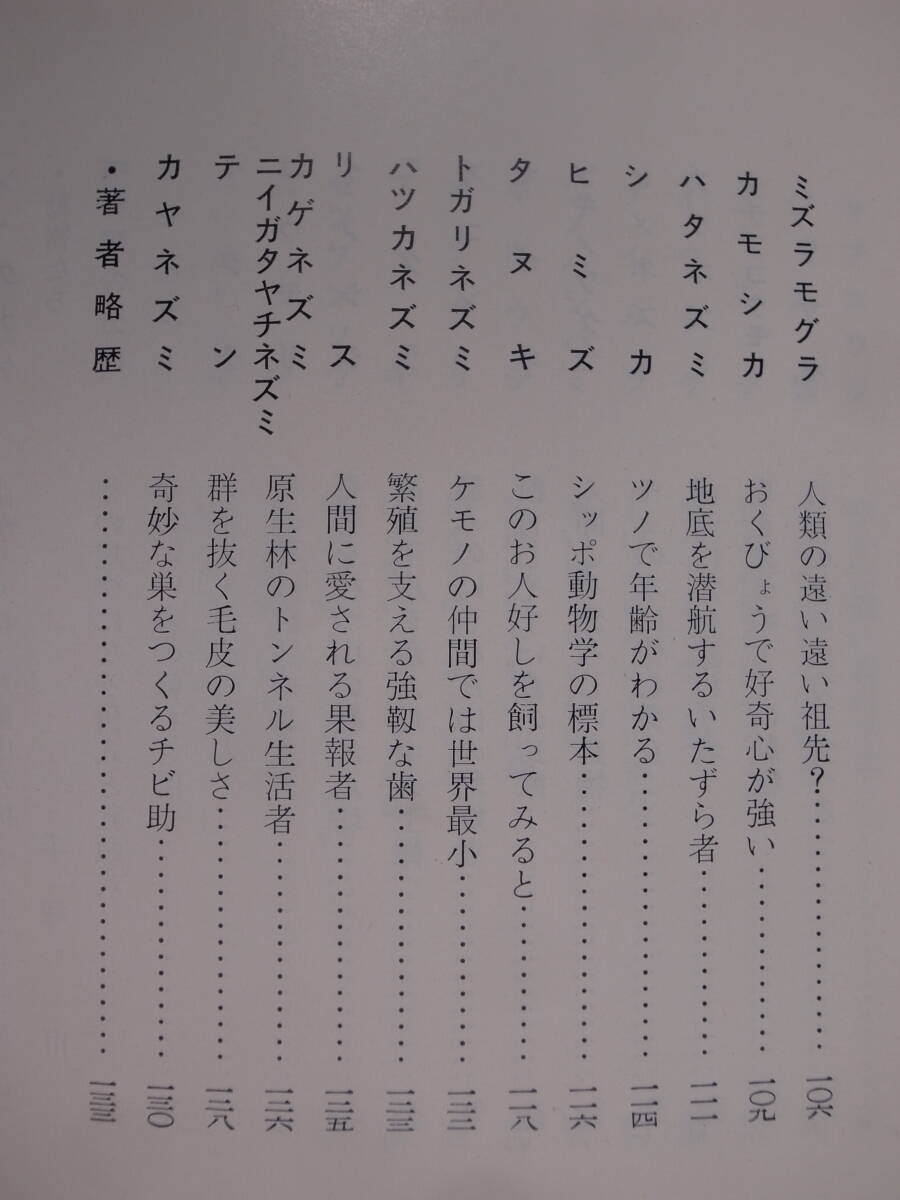 ミズラモグラ 人類の遠い遠い祖先?……………… 一〇六
カモシカ おくびょうで好奇心が強い……………… 一〇九
ハタネズミ 地底を潜航するいたずら者……………… 一一一
シカ ツノで年齢がわかる……………… 一一四
ヒミズ シッポ動物学の標本……………… 一一六
タヌキ このお人好しを飼ってみると……………… 一一八
トガリネズミ ケモノの仲間では世界最小……………… 一二二
ハツカネズミ 繁殖を支える強靱な歯……………… 一二三
リス 人間に愛される果報者……………… 一二五
カゲネズミ
ニイガタヤチネズミ 原生林のトンネル生活者……………… 一二六
テン 群を抜く毛皮の美しさ……………… 一二八
カヤネズミ 奇妙な巣をつくるチビ助……………… 一三〇
・著者略歴 ……………………………… 一三三